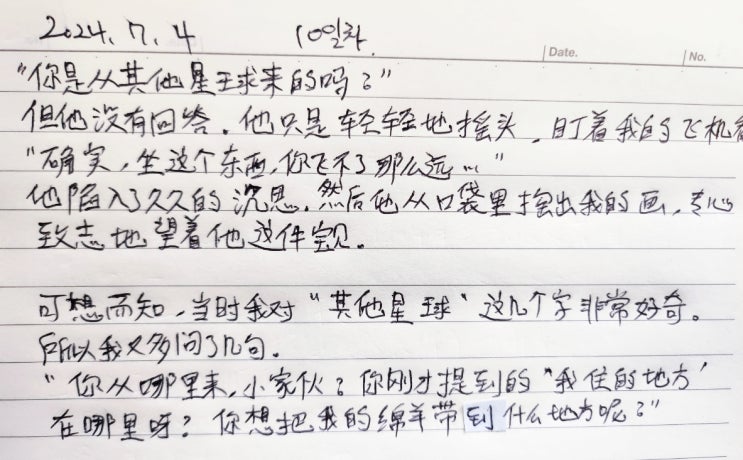 2024. 7. 4 10일차.
Date. No.
“你是从其他星球来的吗？”
但他没有回答。他只是轻轻地摇头，盯着我的飞机看
“确实，坐这个东西，你飞不了那么远…”
他陷入了久久的沉思。然后他从口袋里掏出我的画，专心
致志地望着他这件宝贝。
可想而知，当时我对“其他星球”这几个字非常好奇。
所以我又多问了几句。
“你从哪里来，小家伙？你刚才提到的“我住的地方’
在哪里呀？你想把我的绵羊带到什么地方呢？”